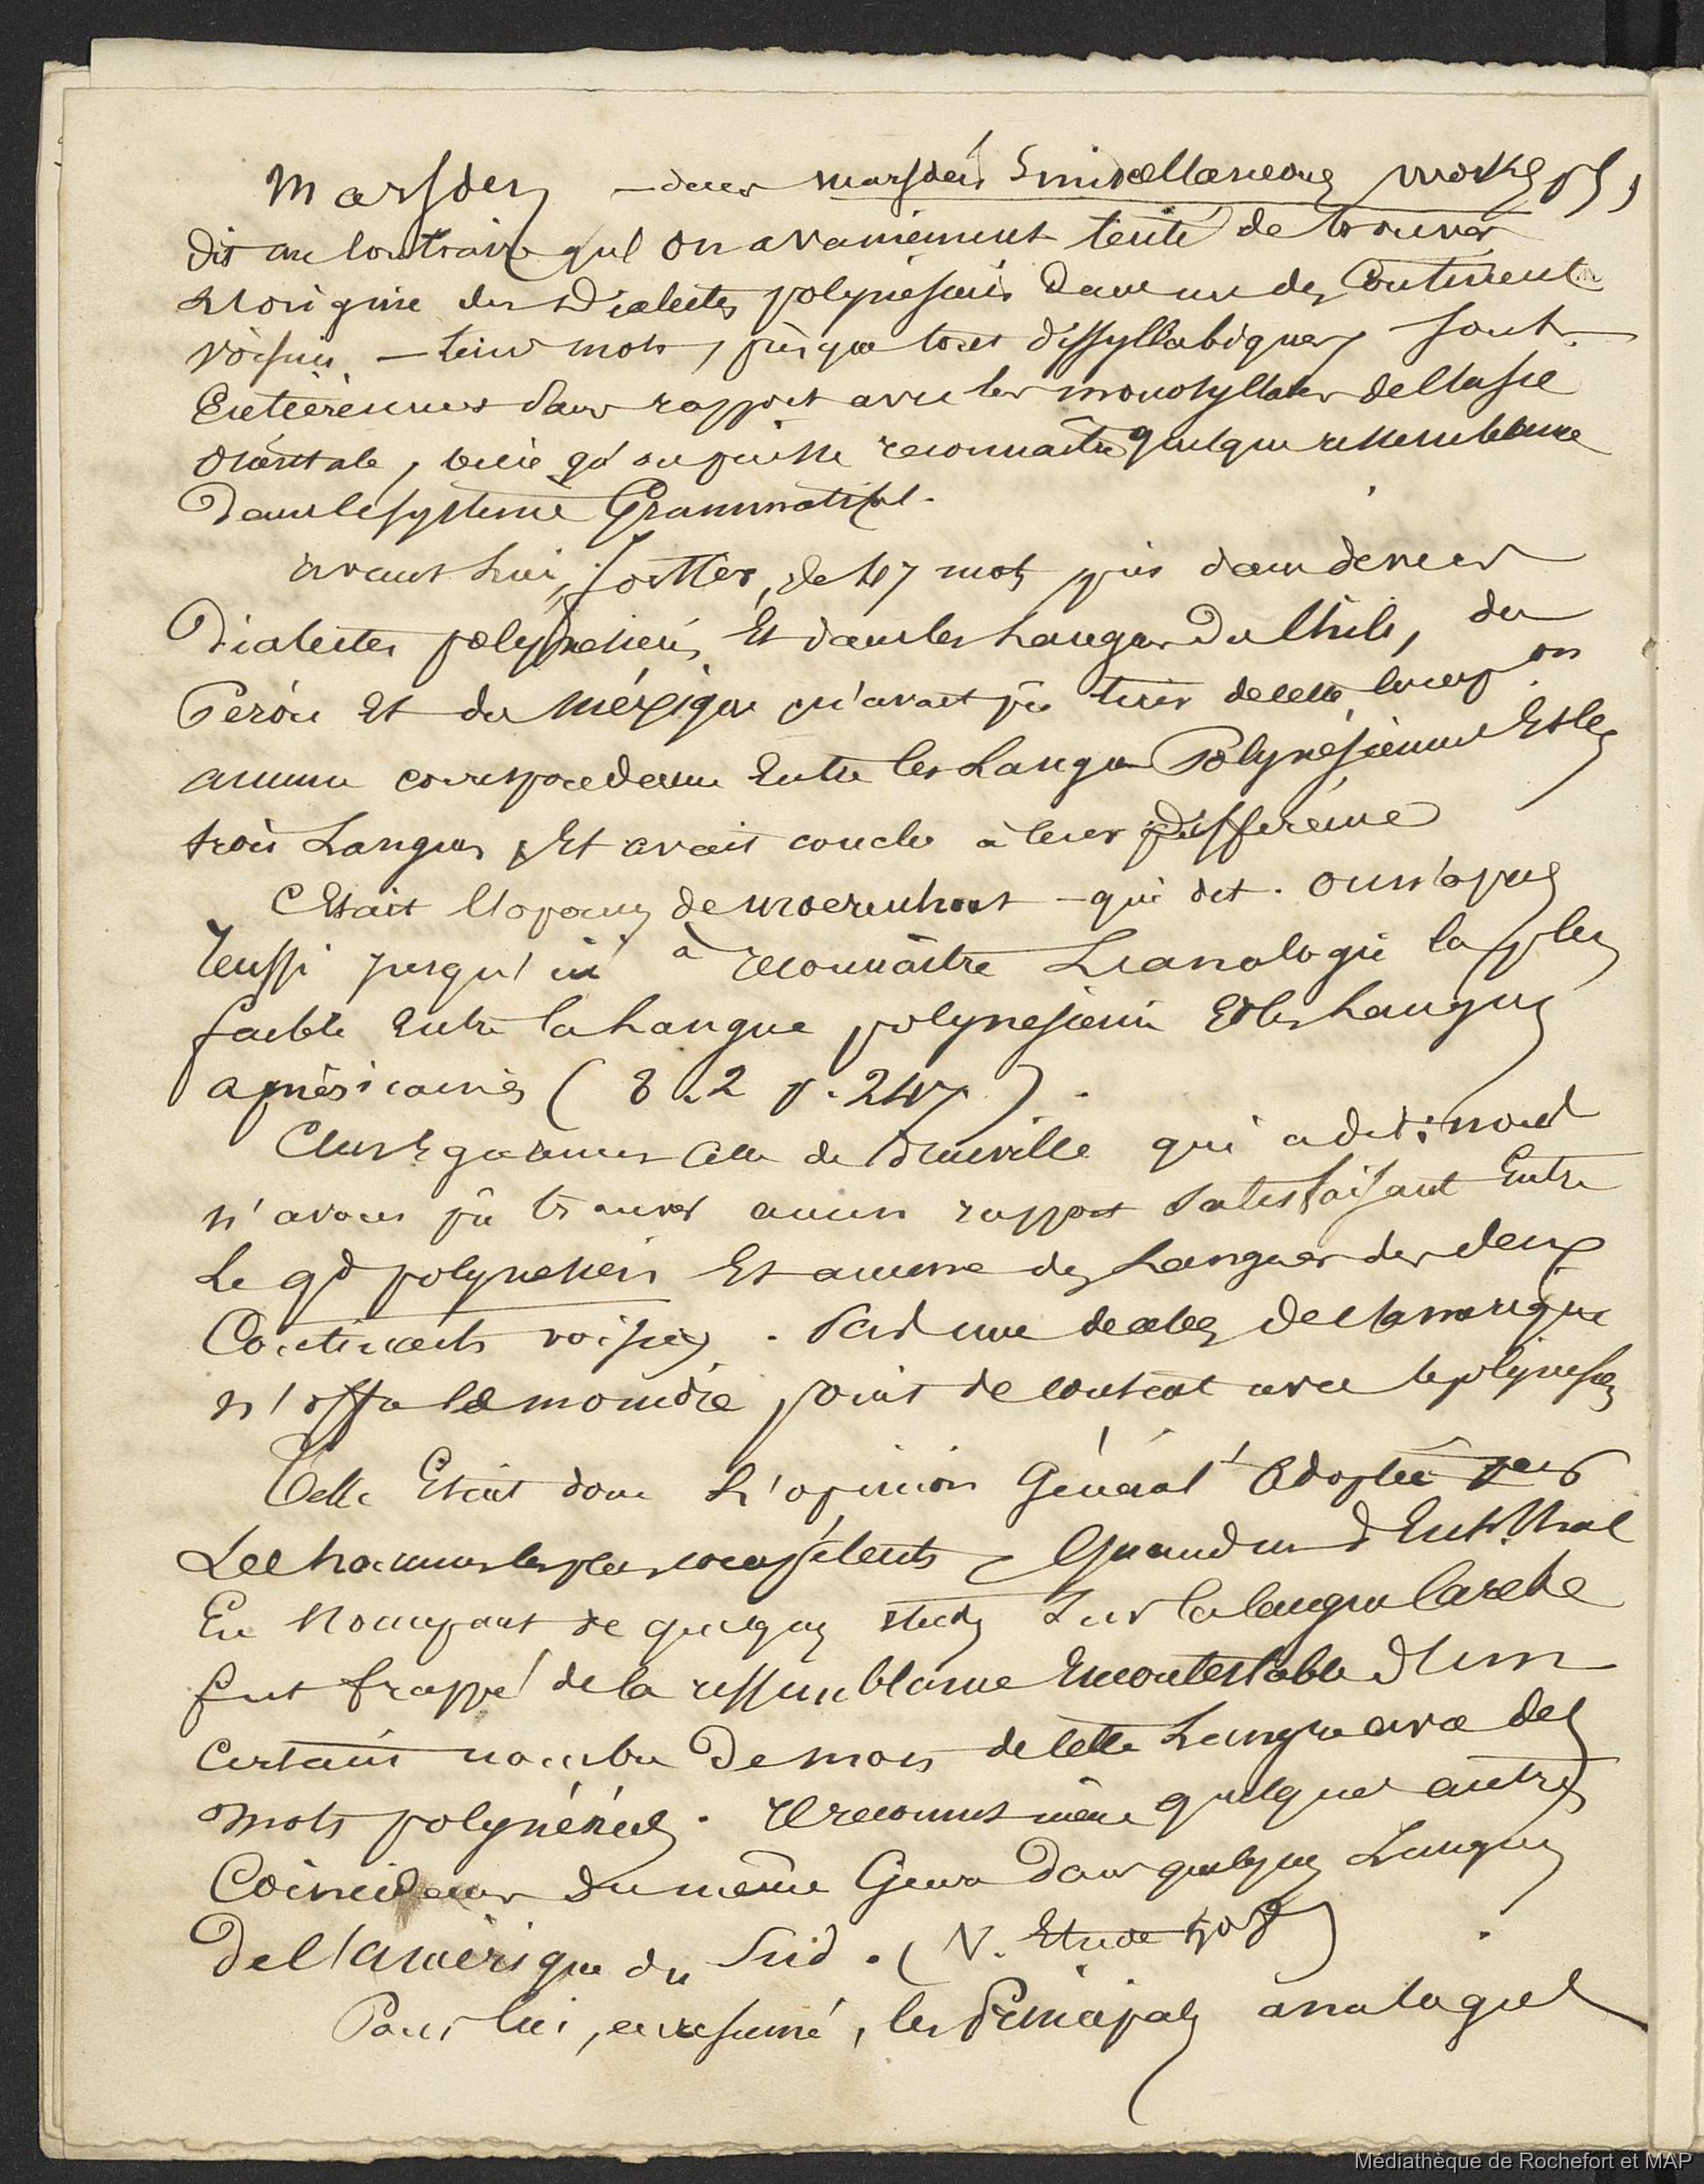 Marsden — dans Marsden's miscellaneous works p 5,
dit au contraire qu'l on a vainement tenté de trouver
L'origine des Dialectes polynésiens dans un des Continent
voisins. — leurs mots, presque tous dissyllabiques, sont
Entièrement sans rapport avec les monosyllabes de l'asie
orientale, bien qu'on puisse reconnaître quelque ressemblance
Dans le système Grammatical.
avant lui, forster, de 47 mots pris dans divers
Dialectes polynésiens Et dans les Langues du Chili, du
Pérou Et du Méxique n'avait pu tirer de cette comp.on
aucune correspondance Entre les Langues Polynésiennes Et les
trois Langues, Et avait conclu à leur Différence
C'Etait l'opinion de Moerenhout — qui dit. on n'a pas
réussi jusqu'ici à reconnaître L'analogie la plus
faible Entre la Langue polynesienne Et les Langues
américaines ( T. 2 p. 247 ).
C'Est également celle de d'urville qui a dit: nous
n'avons pu trouver aucun rapport satisfaisant Entre
Le gd polynesien Et aucune des Langues des deux
Continents voisins. Pas une de celles de l'amerique
n'offre le moindre point de contact avec le polynesien
Telle Etait donc L'opinion Général Adoptée par
Les hommes les plus compétents, Quand un d'Entr.
En s'occupant de quelques études Sur la langue Caraïbe
fut frappé de la ressemblance Incontestable d'un
Certain nombre De mots de cette Langue avec des
mots polynésiens. Il reconnut même quelques autres
Coincidences Du même Genre Dans quelques Langues
De l'amérique du Sud. ( V. Etude 508 )
Pour lui, en résumé, les Principales analogies